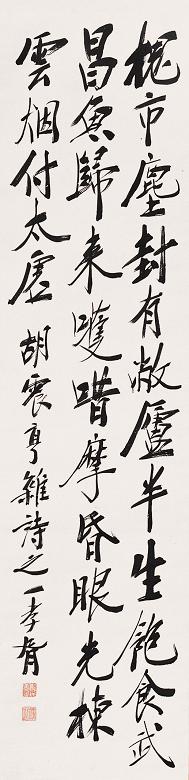 槐市塵封有敝廬半生飽食武
昌魚歸来嚄唶摩昏眼充棟
雲烟付太虛 胡震亨雜詩之一孝胥